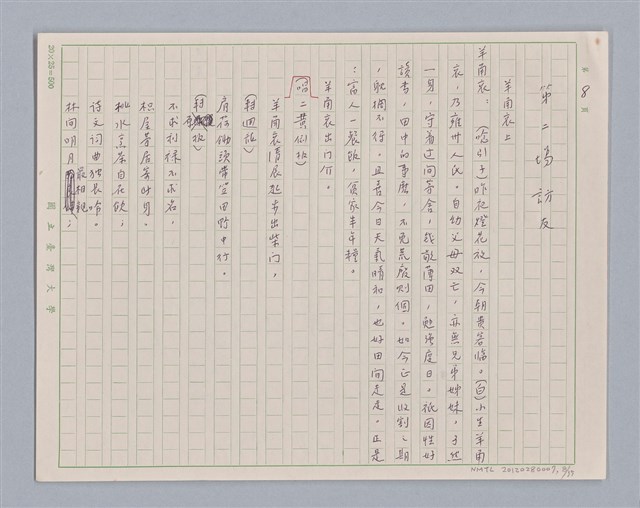 第 8 頁
第二場 訪友
羊角哀上
羊角哀：（唸引子）昨夜燈花放，今朝貴客臨。（白）小生羊角
哀，乃雍州人氏。自幼父母双亡，亦無兄弟姊妹，孑然
一身，守着这间茅舍，幾畝薄田，勉強度日。祇因性好
讀書，田中的事廢，不免荒廢则個。如今正是收割之期
，耽擱不得。且喜今日天氣晴和，也好田间走走。正是
：富人一餐飯，貧家半年糧。
羊角哀出门介。
（唱二黄倒板）
羊角哀清晨起步出柴门，
（轉迴龍）
肩荷鋤頭帶笠田野中行。
（轉原板）
不求利祿不求名，
枳屋茅居寄此身。
挑水烹茶自在飲；
詩文词曲独長吟。
林间明月最相親；
20×25=500
國立臺灣大學
NMTL 20120280007, 8/37